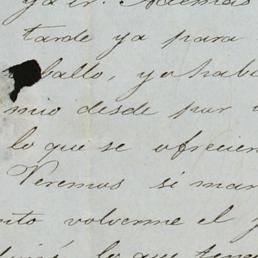 ya ir. Además
tarde ya para
ballo, yo habi
mio desde por
lo que se ofrecien
Veremos si mar
nto volverme el
lo que teng